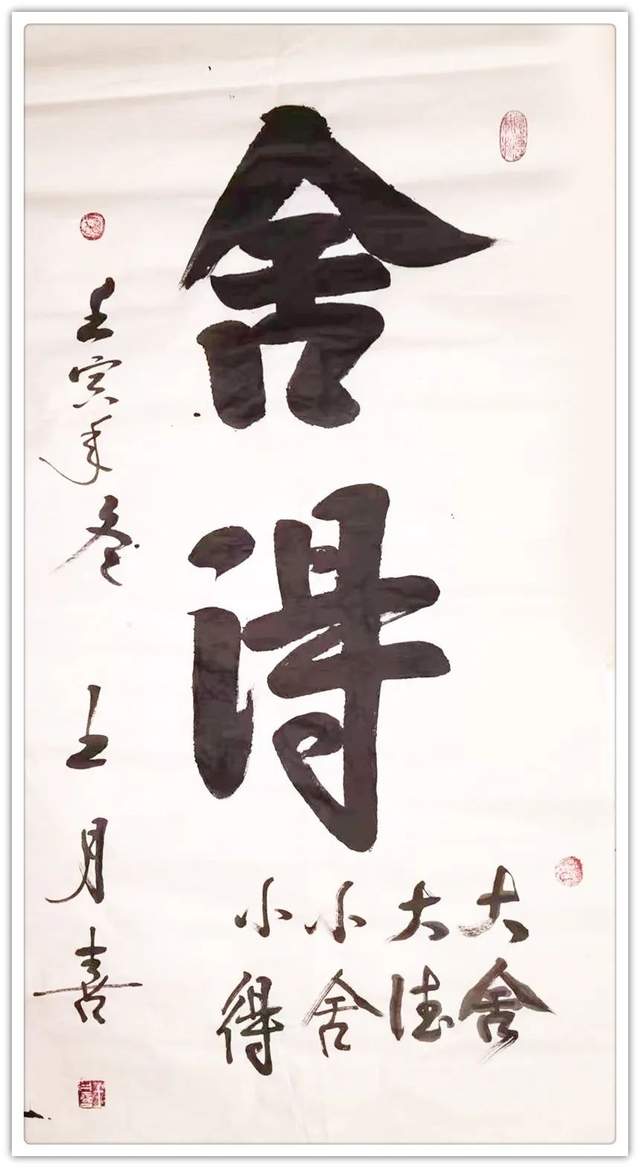 舍得
大舍
大得
小舍
小得
壬寅年冬 王月喜